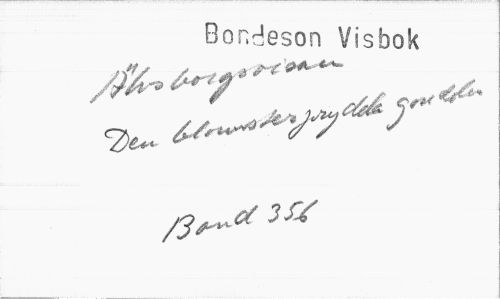 Bondeson Visbok
Älvsborgsvisan
Den blomsterprydda gondolen
Band 356